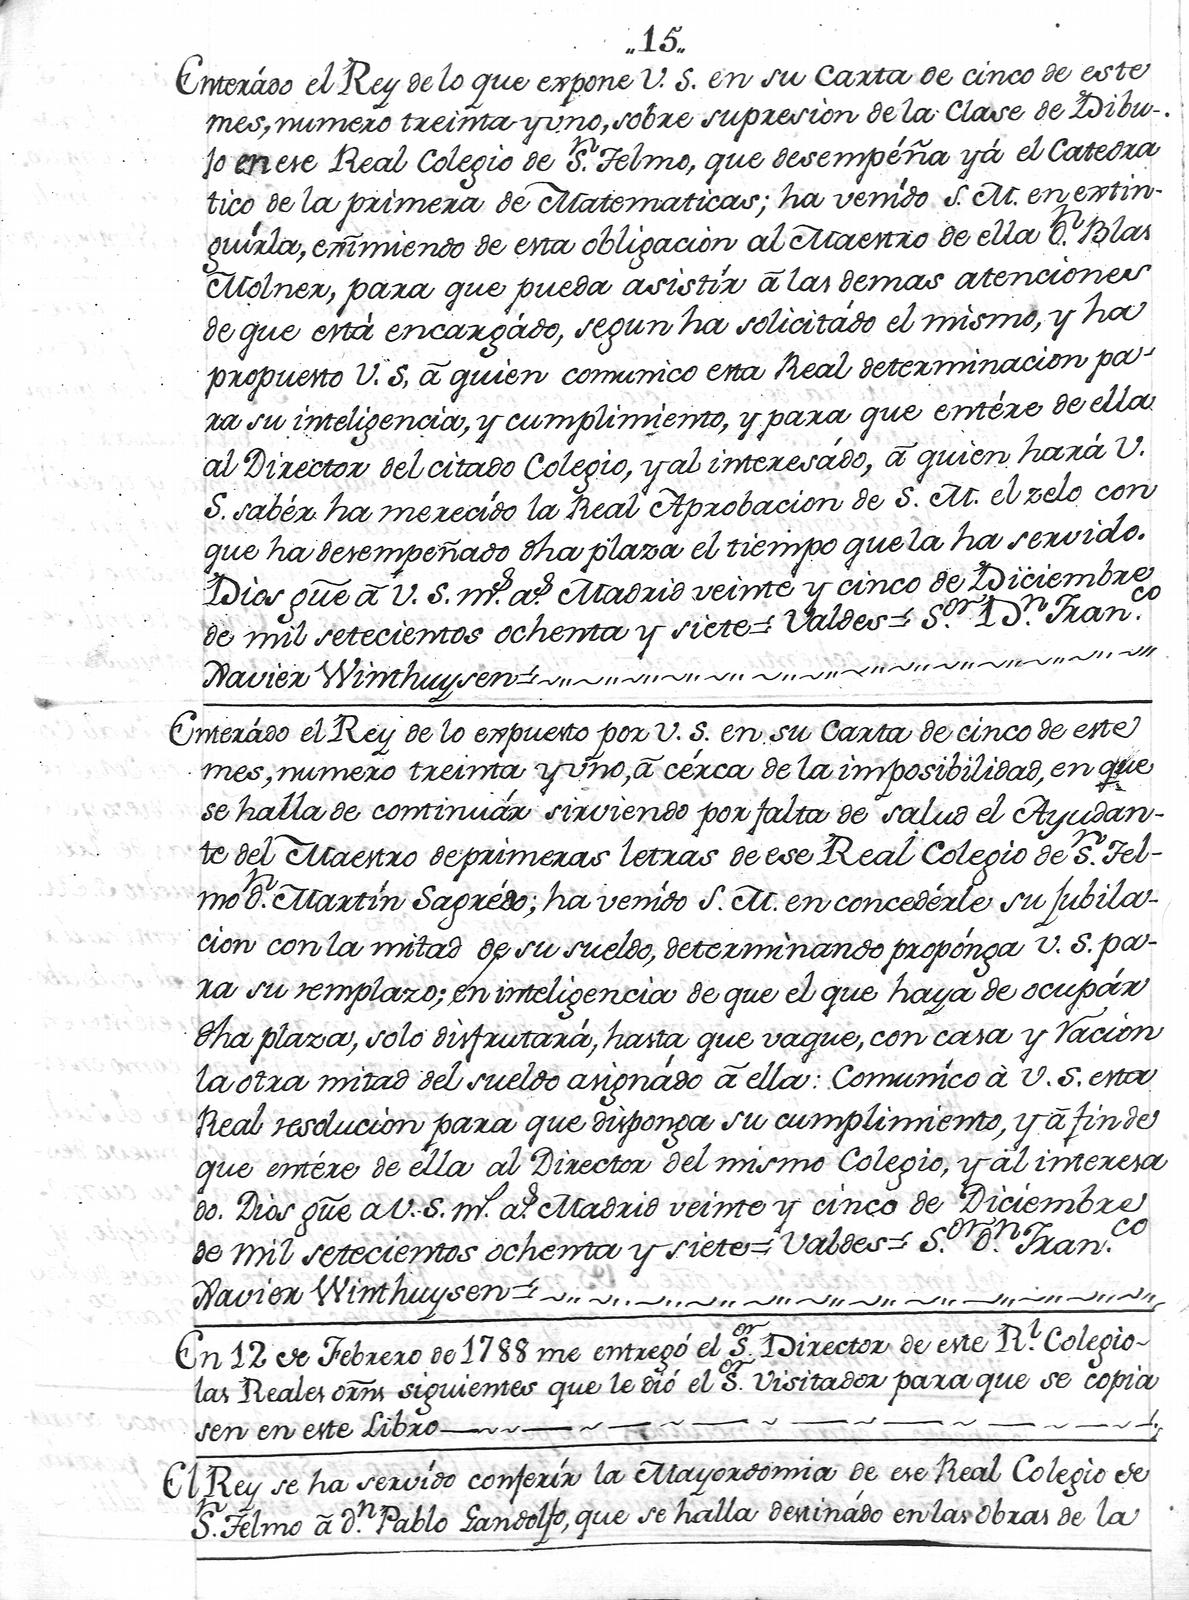 „15„
Enterádo el Rey de lo que expone V. S. en su Carta de cinco de este
mes, numero treinta y vno, sobre supresion de la Clase de Dibu-
jo en ese Real Colegio de Sⁿ. Telmo, que desempéña yá el Catedra
tico de la primera de Matematicas; ha venído S. M. en extin-
guirla, exîmiendo de esta obligacion al Maestro de ella dⁿ. Blas
Molner, para que pueda asistír ā las demas atenciones
de que está encargádo, segun ha solicitádo el mismo, y ha
propuesto V. S. ā quien comunico esta Real determinacion pa-
ra su inteligencia, y cumplimiento, y para que entére de ella
al Director del citado Colegio, y al interesádo, ā quien hará V.
S. sabér ha merecído la Real Aprobacion de S. M. el zelo con
que ha desempeñado dha plaza el tiempo que la ha servido.
Dios gūe ā V. S. mˢ. aˢ. Madrid veinte y cinco de Diciembre
de mil setecientos ochenta y siete = Valdes = Sᵒʳ. Dⁿ. Franᶜᵒ.
Xavier Winthuysen =
Enterádo el Rey de lo expuesto por V. S. en su Carta de cinco de este
mes, numero treinta y vno, ā cérca de la imposibilidad, en que
se halla de continuár sirviendo por falta de salud el Ayudan-
te del Maestro de primeras letras de ese Real Colegio de Sⁿ. Tel-
mo dⁿ. Martín Sagrédo; ha venído S. M. en concedérle su jubila-
cion con la mitad de su sueldo, determinando propónga V. S. pa-
ra su remplazo; en inteligencia de que el que haya de ocupár
dha plaza, solo disfrutará, hasta que vaque, con casa y racion
la otra mitad del sueldo asignádo ā ella: Comuníco à V. S. esta
Real resolucion para que disponga su cumplimiento, y ā fin de
que entére de ella al Director del mismo Colegio, y al interesa
do. Dios gūe a V. S. mˢ. aˢ. Madrid veinte y cinco de Diciembre
de mil setecientos ochenta y siete = Valdes = Sᵒʳ. dⁿ. Franᶜᵒ.
Xavier Winthuysen =
En 12 de Febrero de 1788 me entregó el Sᵒʳ. Director de este Rˡ. Colegio
las Reales orn̄s siguientes que le dió el Sᵒʳ. Visitador para que se copia
sen en este Libro
El Rey se ha servído conferír la Mayordomia de ese Real Colegio de
Sⁿ. Telmo ā dⁿ. Pablo Gandolfo, que se halla destinádo en las Obras de la